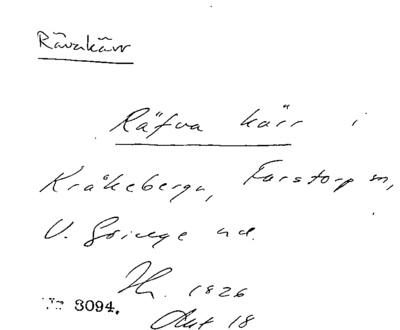 Rävakärr
Räfva kärr i
Kråkeberga, Farstorp sn,
V. Göinge hd.
1826
No 3094.
Akt 18